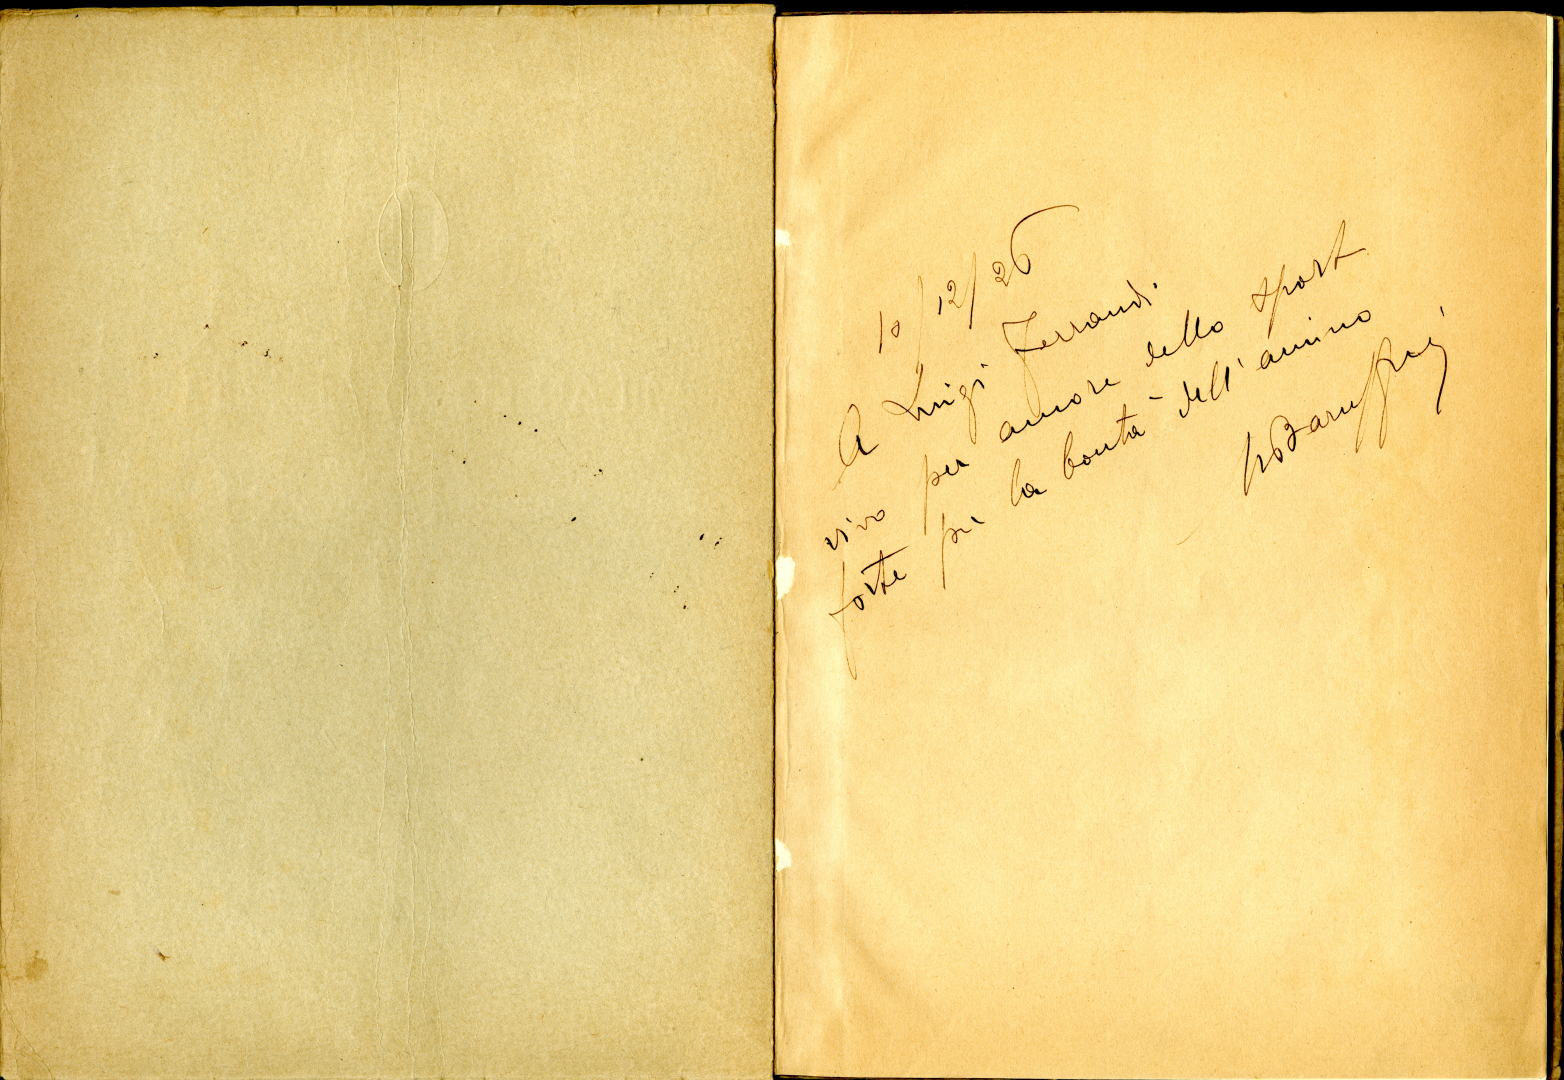 10/12/26
A Luigi Ferrandi
vivo per amore dello sport
forte per la bontà dell'animo
Baruffini